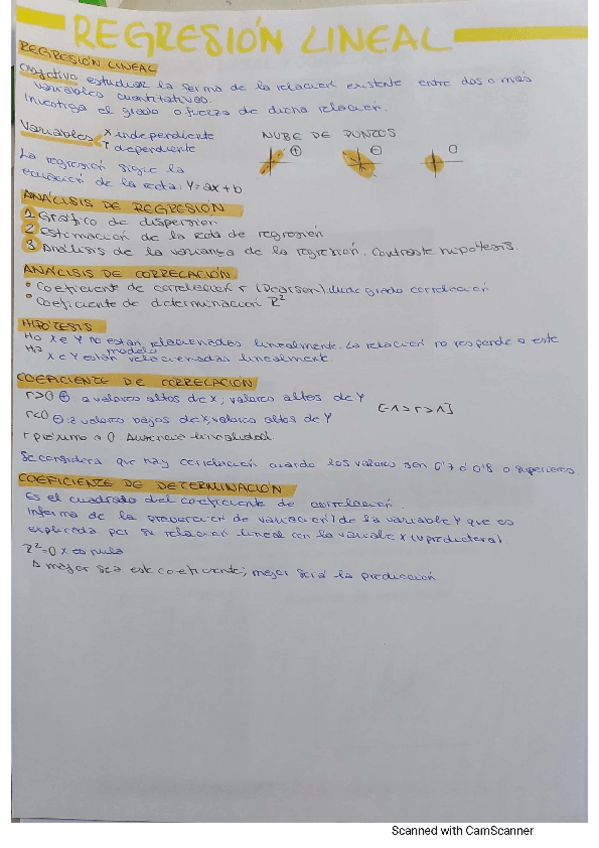 REGRESIÓN LINEAL
REGRESIÓN LINEAL
Objetivo estudiar la forma de la relación existente entre dos o más
variables cuantitativas.
Investiga el grado o fuerza de dicha relación.
Variables X independiente
Y dependiente
NUBE DE PUNTOS
+ - 0
La regresión sigue la
ecuación de la recta: Y=ax+b
ANÁLISIS DE REGRESIÓN
1 Gráfico de dispersión
2 Estimación de la recta de regresión
3 Análisis de la varianza de la regresión. Contraste hipótesis.
ANÁLISIS DE CORRELACIÓN
• Coeficiente de correlación r (Pearson). Mide grado correlación
• Coeficiente de determinación R²
HIPÓTESIS
H0 X e Y no están relacionados linealmente. La relación no responde a este
modelo
Ha X e Y están relacionadas linealmente.
COEFICIENTE DE CORRELACIÓN
r>0 ⊕ a valores altos de X; valores altos de Y
[-1>r>1]
r<0 ⊖: a valores bajos de X, valores altos de Y
r próximo a 0: Ausencia linealidad
Se considera que hay correlación cuando los valores son 0'7 ó 0'8 o superiores
COEFICIENTE DE DETERMINACIÓN
Es el cuadrado del coeficiente de correlación.
Informa de la proporción de variación de la variable Y que es
explicada por su relación lineal con la variable X (v predictora)
R²=0 X es nula
Δ mejor sea este coeficiente; mejor será la predicción
Scanned with CamScanner